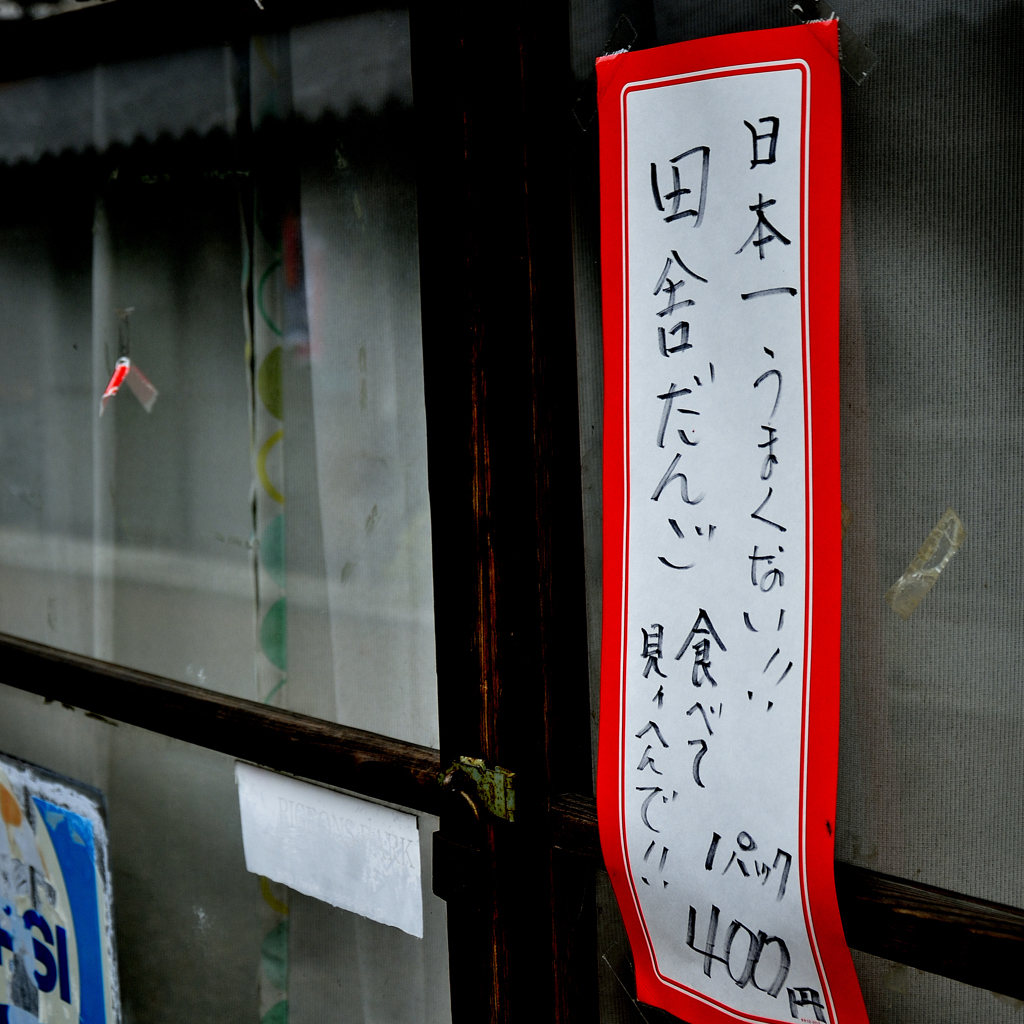 日本一うまくない!!
田舎だんご
食べて
見ィへんで!!
1パック
400円
PIGEONS PARK